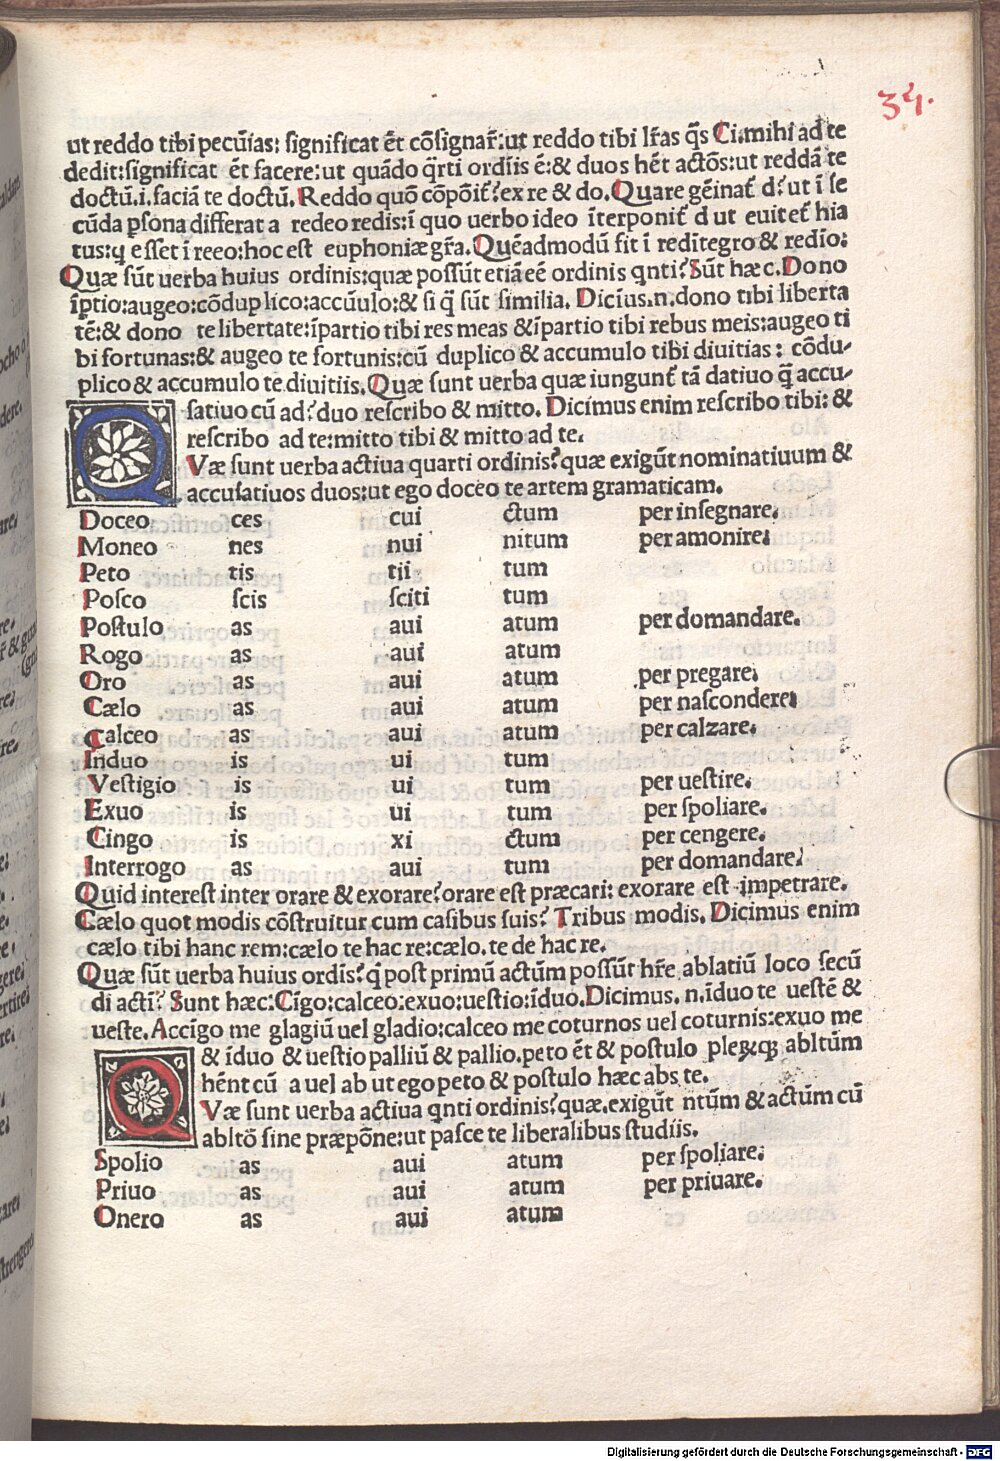 34.
ut reddo tibi pecūias: significat ēt cōsignar̄:ut reddo tibi lr̄as q̄s Ci.mihi ad te
dedit:significat ēt facere:ut quādo q̄rti ordīis ē:& duos hēt actōs:ut reddā te
doctū.i.faciā te doctū.Reddo quō cōpōit̄?ex re & do.Quare gēinat̄ d?ut ī se
cūda ꝑsona differat a redeo redis:ī quo uerbo ideo īterponit̄ d ut euitet̄ hia
tus:q esset ī reeo:hoc est euphoniæ gr̄a.Quēadmodū fit ī reditegro & redīo:
Quæ sūt uerba huius ordinis:quæ possūt etiā eē ordinis qnti?Sūt hæc.Dono
īptio:augeo:cōduplico:accūulo:& si q̄ sūt similia. Dicīus.n.dono tibi liberta
tē:& dono te libertate:īpartio tibi res meas &īpartio tibi rebus meis:augeo ti
bi fortunas:& augeo te fortunis:cū duplico & accumulo tibi diuitias: cōdu-
plico & accumulo te diuitiis.Quæ sunt uerba quæ iungunt̄ tā datiuo q̄ accu-
satiuo cū ad?duo rescribo & mitto. Dicimus enim rescribo tibi: &
rescribo ad te:mitto tibi & mitto ad te.
QVæ sunt uerba actiua quarti ordinis?quæ exigūt nominatiuum &
accusatiuos duos:ut ego doceo te artem gramaticam.
Doceo ces cui ctum per insegnare.
Moneo nes nui nitum per amonire.
Peto tis tii tum
Posco scis sciti tum
Postulo as aui atum per domandare.
Rogo as aui atum
Oro as aui atum per pregare.
Cælo as aui atum per nascondere.
Calceo as aui atum per calzare.
Induo is ui tum
Vestigio is ui tum per uestire.
Exuo is ui tum per spoliare.
Cingo is xi ctum per cengere.
Interrogo as aui tum per domandare.
Quid interest inter orare & exorare?orare est præcari: exorare est impetrare.
Cælo quot modis cōstruitur cum casibus suis? Tribus modis. Dicimus enim
cælo tibi hanc rem:cælo te hac re:cælo.te de hac re.
Quæ sūt uerba huius ordīs?q post primū actūm possūt hr̄e ablatiū loco secū
di acti? Sunt hæc:Cīgo:calceo:exuo:uestio:īduo.Dicimus. n.īduo te uestē &
ueste.Accīgo me glagiū uel gladio:calceo me coturnos uel coturnis:exuo me
& īduo & uestio palliū & pallio.peto ēt & postulo pleꝝqꝫ abltūm
hēnt cū a uel ab ut ego peto & postulo hæc abs te.
QVæ sunt uerba actiua qnti ordinis?quæ.exigūt ntūm & actūm cū
abltō sine præpōne:ut pasce te liberalibus studiis.
Spolio as aui atum per spoliare.
Priuo as aui atum per priuare.
Onero as aui atum
Digitalisierung gefördert durch die Deutsche Forschungsgemeinschaft - DFG